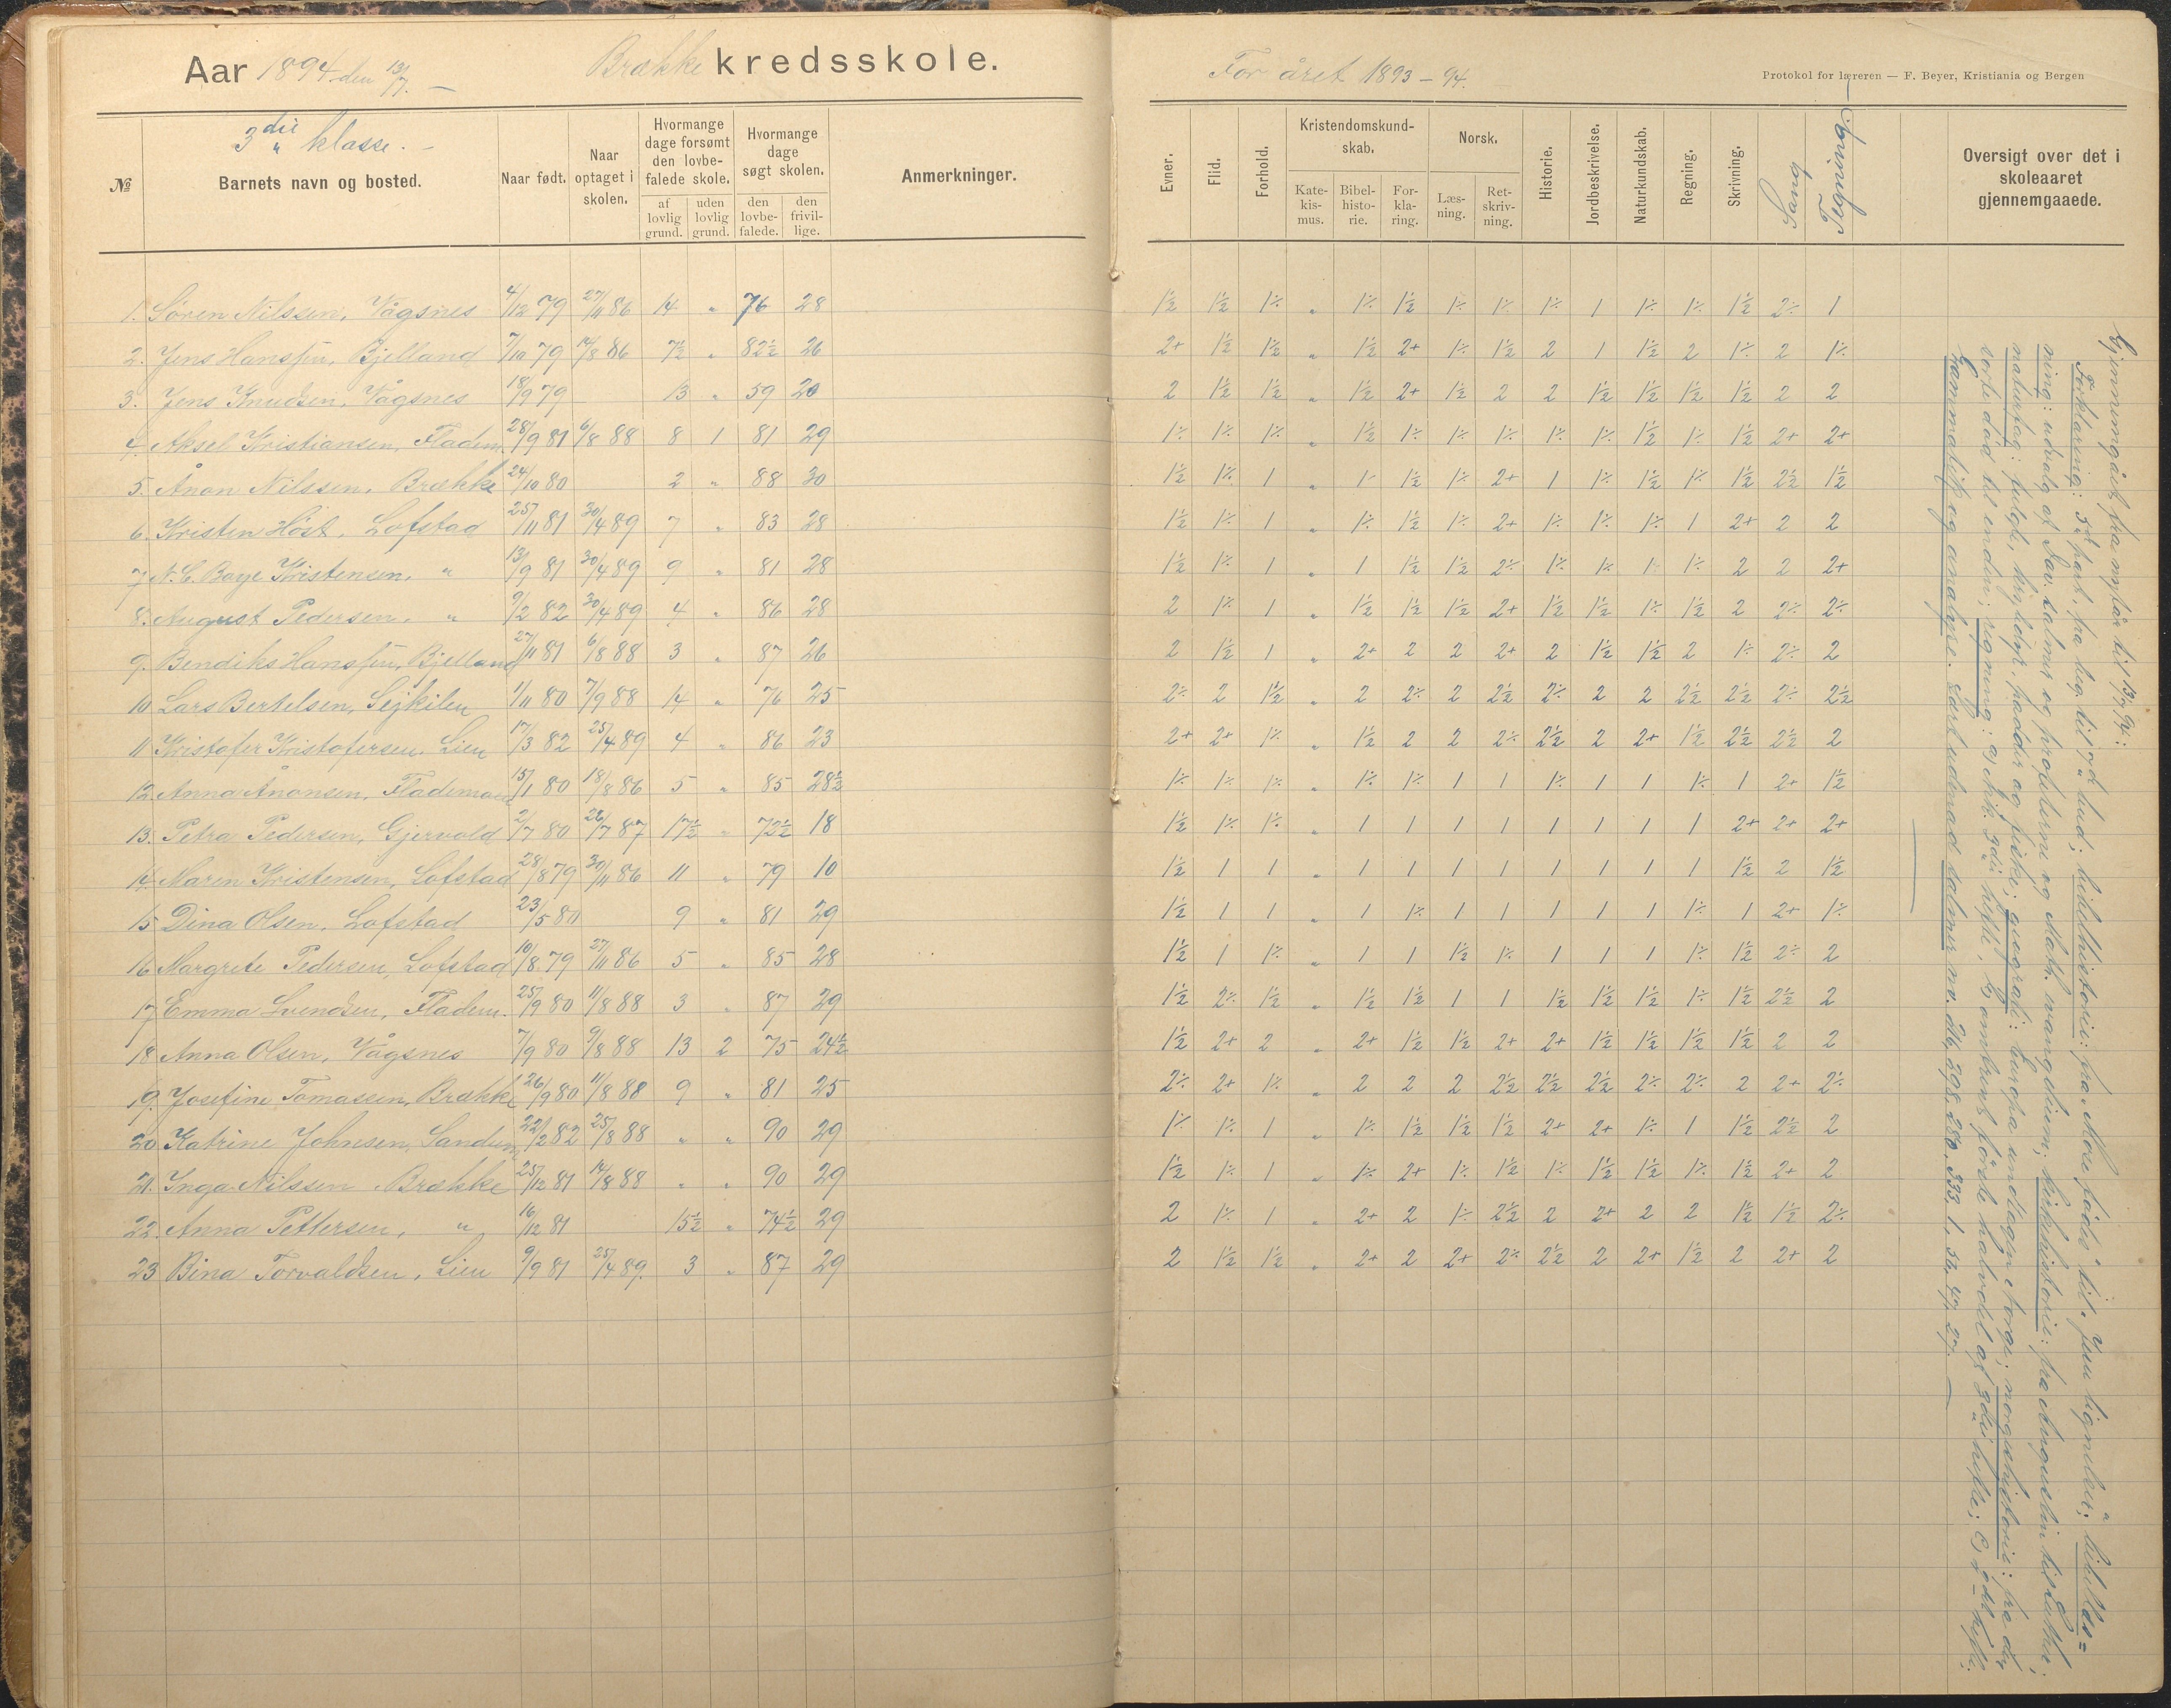 Aar 1894 den 13/7. —
Brække kredsskole.
3die klasse. —
№
Barnets navn og bosted.
Naar født.
Naar optaget i skolen.
Hvormange dage forsømt den lovbefalede skole.
af lovlig grund.
uden lovlig grund.
Hvormange dage søgt skolen.
den lovbefalede.
den frivillige.
Anmerkninger.
1. Søren Nilssen, Vågsnes 4/12 79 27/11 86 14 " 76 28
2. Jens Hanssen, Bjelland 7/10 79 14/8 86 7½ " 82½ 26
3. Jens Knudsen, Vågsnes 18/9 79 13 " 59 20
4. Aksel Kristiansen, Fladem. 28/9 81 6/8 88 8 1 81 29
5. Ånon Nilssen, Brække 24/10 80 2 " 88 30
6. Kristen Höst, Lofstad 25/11 81 30/4 89 7 " 83 28
7. N. C. Boye Kristensen, " 13/9 81 30/4 89 9 " 81 28
8. August Pedersen, " 9/2 82 30/4 89 4 " 86 28
9. Bendiks Hanssen, Bjelland 27/11 81 6/8 88 3 " 87 26
10 Lars Bertelsen, Sejkilen 1/11 80 7/9 88 14 " 76 25
11 Kristofer Kristofersen, Lien 17/3 82 25/4 89 4 " 86 23
12. Anna Ånonsen, Flademoen 15/1 80 18/8 86 5 " 85 28½
13. Petra Pedersen, Gjervold 2/7 80 26/7 87 17½ " 72½ 18
14. Maren Kristensen, Lofstad 28/8 79 30/11 86 11 " 79 10
15 Dina Olsen, Lofstad 23/5 80 9 " 81 29
16 Margrete Pedersen, Lofstad 10/8 79 27/11 86 5 " 85 28
17 Emma Svendsen, Fladem. 25/9 80 11/8 88 3 " 87 29
18 Anna Olsen, Vågsnes 7/9 80 9/8 88 13 2 75 24½
19. Josefine Tomassen, Brække 26/9 80 11/8 88 9 " 81 25
20 Katrine Johnsen, Sandum 22/2 82 25/8 88 " " 90 29
21. Inga Nilssen Brække 25/12 81 14/8 88 " " 90 29
22. Anna Pettersen, " 16/12 81 15½ " 74½ 29
23 Bina Torvaldsen, Lien 9/9 81 25/4 89. 3 " 87 29
For året 1893 — 94.
Protokol for læreren — F. Beyer, Kristiania og Bergen
Evner.
Flid.
Forhold.
Kristendomskundskab.
Katekismus.
Bibelhistorie.
Forklaring.
Norsk.
Læsning.
Retskrivning.
Historie.
Jordbeskrivelse.
Naturkundskab.
Regning.
Skrivning.
Sang
Tegning.
Oversigt over det i skoleaaret gjennemgaaede.
1½ 1½ 1÷ " 1÷ 1½ 1÷ 1÷ 1÷ 1 1÷ 1÷ 1½ 2÷ 1
2+ 1½ 1½ " 1½ 2+ 1÷ 1½ 2 1 1½ 2 1÷ 2 1÷
2 1½ 1½ " 1½ 2+ 1½ 2 2 1½ 1½ 1½ 1½ 2 2
1÷ 1÷ 1÷ " 1½ 1÷ 1÷ 1÷ 1÷ 1÷ 1½ 1÷ 1½ 2+ 2+
1½ 1÷ 1 " 1÷ 1½ 1÷ 2+ 1 1÷ 1½ 1÷ 1½ 2½ 1½
1½ 1÷ 1 " 1÷ 1½ 1÷ 2+ 1÷ 1÷ 1÷ 1 2+ 2 2
1½ 1÷ 1 " 1 1½ 1½ 2÷ 1÷ 1÷ 1÷ 1÷ 2 2 2+
2 1÷ 1 " 1½ 1½ 1½ 2+ 1½ 1½ 1÷ 1½ 2 2÷ 2÷
2 1½ 1 " 2+ 2 2 2+ 2 1½ 1½ 2 1÷ 2÷ 2
2÷ 2 1½ " 2 2÷ 2 2½ 2÷ 2 2 2½ 2½ 2÷ 2½
2+ 2+ 1÷ " 1½ 2 2 2÷ 2½ 2 2+ 1½ 2½ 2½ 2
1÷ 1÷ 1÷ " 1÷ 1÷ 1 1 1÷ 1 1 1÷ 1 2+ 1½
1½ 1÷ 1÷ " 1 1 1 1 1 1 1 1 2+ 2+ 2+
1½ 1 1 " 1 1 1 1 1 1 1 1 1½ 2 1½
1½ 1 1 " 1 1÷ 1 1 1 1 1 1÷ 1 2+ 1÷
1½ 1 1÷ " 1 1 1½ 1÷ 1 1 1 1÷ 1½ 2÷ 2
1½ 2÷ 1½ " 1½ 1½ 1 1 1½ 1½ 1½ 1÷ 1½ 2½ 2
1½ 2+ 2 " 2+ 1½ 1½ 2+ 2+ 1½ 1½ 1½ 1½ 2 2
2÷ 2+ 1÷ " 2 2 2 2½ 2½ 2½ 2÷ 2÷ 2 2+ 2÷
1÷ 1÷ 1 " 1÷ 1½ 1½ 1½ 2+ 2+ 1÷ 1 1½ 2½ 2
1½ 1÷ 1 " 1÷ 2+ 1÷ 1½ 1÷ 1½ 1½ 1÷ 1½ 2+ 2
2 1÷ 1 " 2+ 2 1÷ 2½ 2 2+ 2 2 1½ 1½ 2÷
2 1½ 1½ " 2+ 2 2+ 2÷ 2½ 2 2+ 1½ 2 2+ 2
Gjennemgået fra nyår til 13/7 94:
Forklaring: 5te part, fra beg. til bud; bibelhistorie: fra Mose föds. til Jesu lignelser; bibellæs=
ning: udvalg af Dav. salmer og profeterne og Math. evangelium; kirkehistorie: fra Augustin til Luther;
naturfag: fugle, krybdyr, padder og fiske; geografi: Europa undtagen Norge; norgeshistorie: fra den
sorte död til enden; regning: a) 3die hefte, b) omtrent förste halvdel af 2det hefte; c) hefte.
Grammatik og analyse. Lært udenad salmer no. 216, 298, 280, 333, 1, 32, 47, 27. —